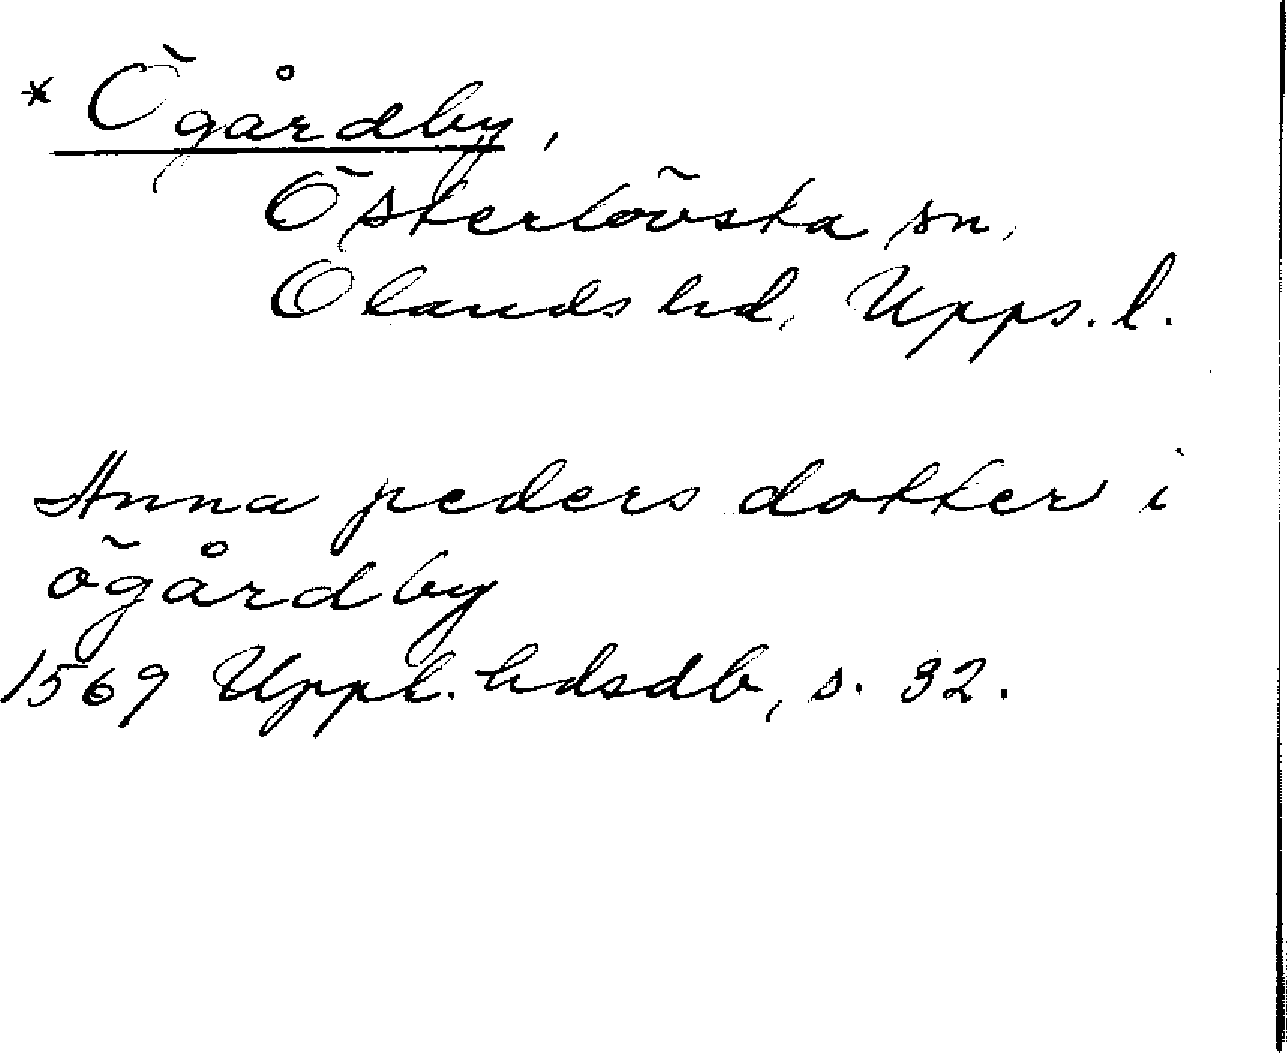 * Ögårdby,
Österlövsta sn,
Olands hd, Upps. l.
Anna peders dotter i
ögårdby
1569 Uppl. hdsdb, s. 32.